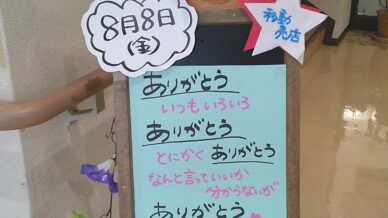 8月8日
(金)
移動
売店
ありがとう
いつもいろいろ
ありがとう
とにかく ありがとう
なんと言っていいか
分からないが
ありがとう